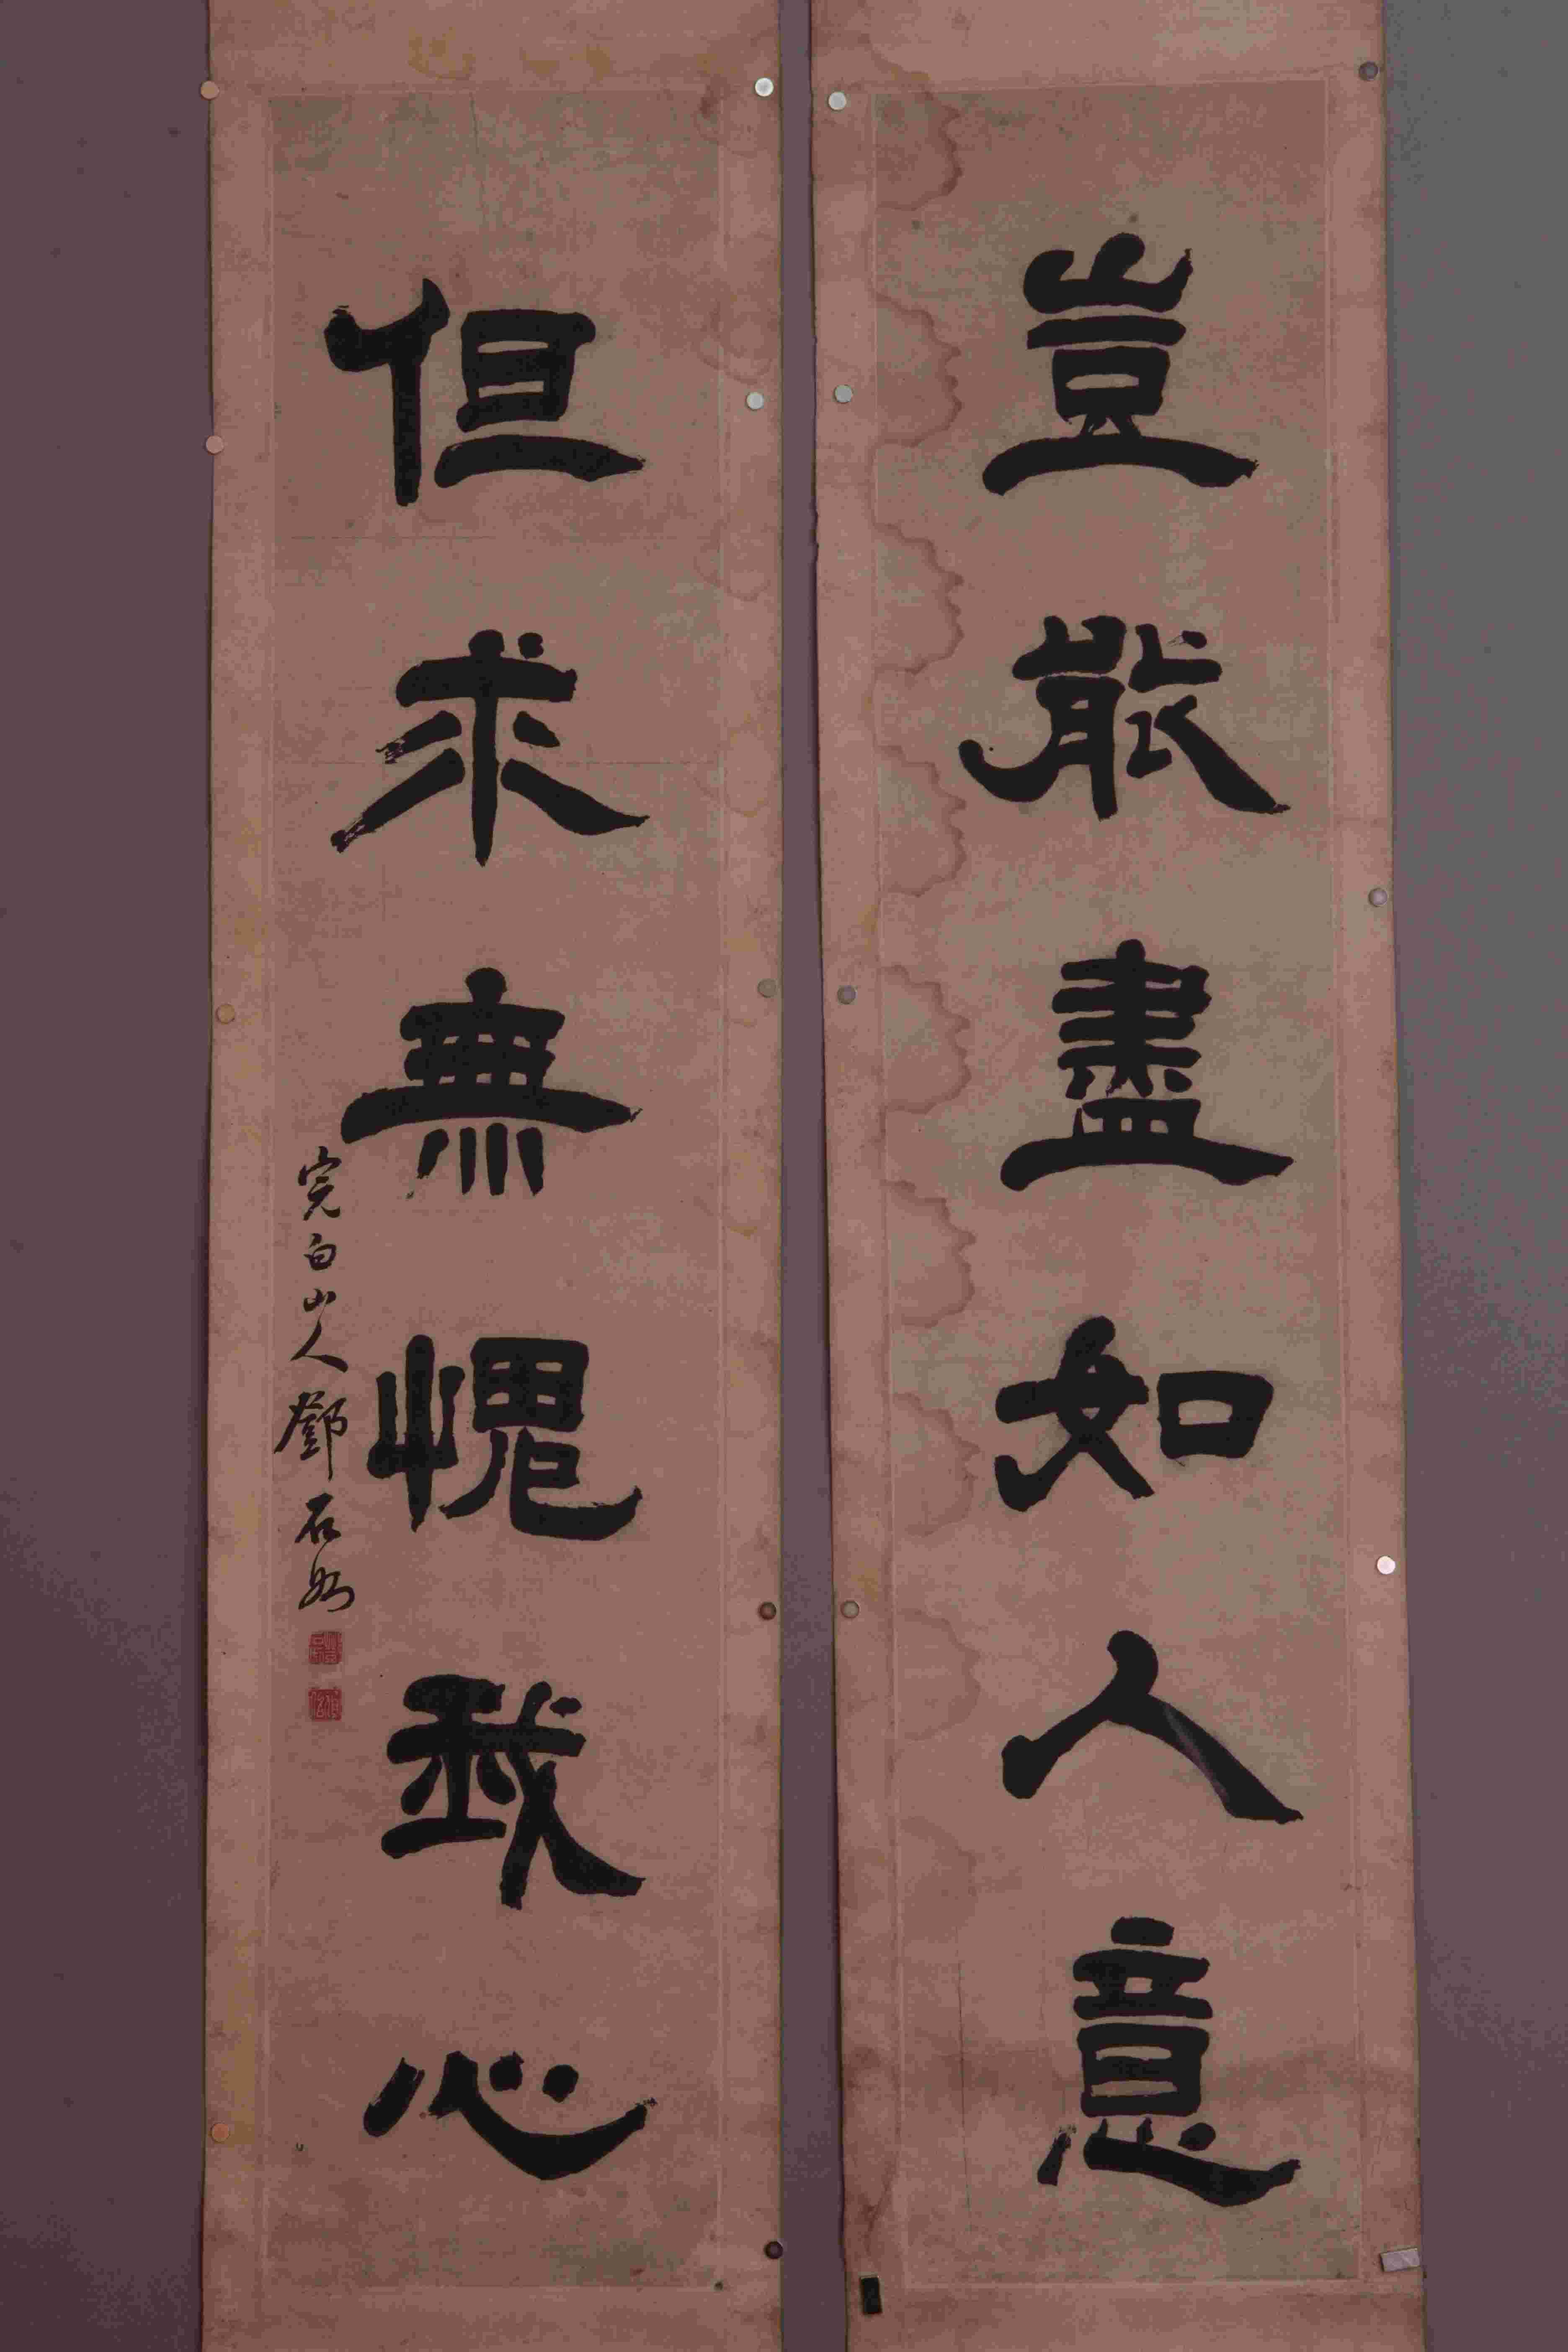 豈能盡如人意
但求無愧我心
完白山人鄧石如